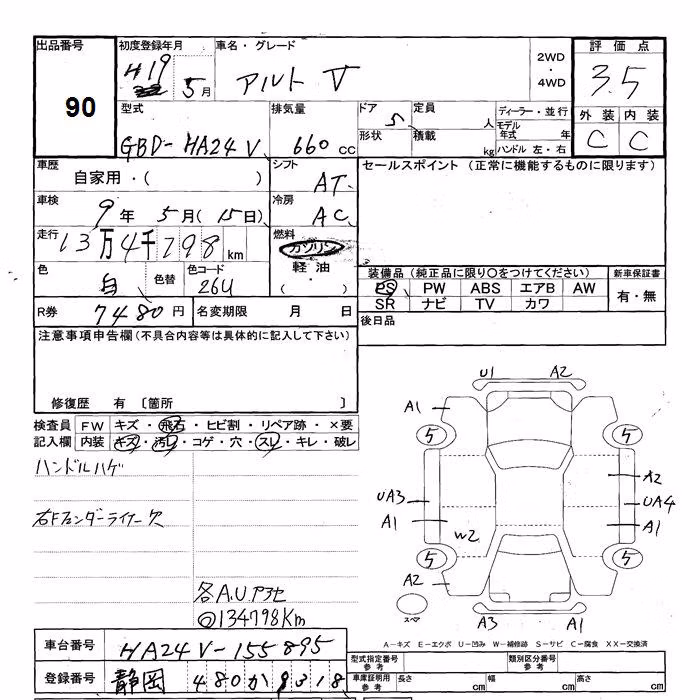 出品番号 初度登録年月 車名・グレード 2WD ・ 4WD 評価点
90 H19 5月 アルト V 3.5
型式 排気量 ドア 定員 ディーラー・並行 外装 内装
GBD-HA24V 660cc 5 人 モデル年式 年 C C
形状 積載 kg ハンドル 左・右
車歴 シフト セールスポイント (正常に機能するものに限ります)
自家用・( ) AT
車検 冷房
9年 5月(15日) AC
走行 燃料
13万4千798km ガソリン
色 色替 色コード 軽油
白 26U ・( )
装備品 (純正品に限り○をつけてください) 新車保証書
PS PW ABS エアB AW 有・無
SR ナビ TV カワ
R券 7480円 名変期限 月 日
後日品
注意事項申告欄(不具合内容等は具体的に記入して下さい)
修復歴 有 〔箇所 〕
検査員 FW キズ・飛石・ヒビ割・リペア跡・×要
記入欄 内装 キズ・汚レ・コゲ・穴・スレ・キレ・破レ
ハンドルハゲ
右Fフェンダーライナー欠
各A.U.アセ
◎134798Km
U1 A2
A1
5 5
A2
UA3 UA4
A1 A1
W2
5 5
A2
スペア
A3 A1
A-キズ E-エクボ U-凹み W-補修跡 S-サビ C-腐食 XX-交換済
車台番号 HA24V-155895
型式指定番号 参考 類別区分番号 参考
登録番号 静岡 480か9318
車庫証明用 参考 長さ cm 幅 cm 高さ cm